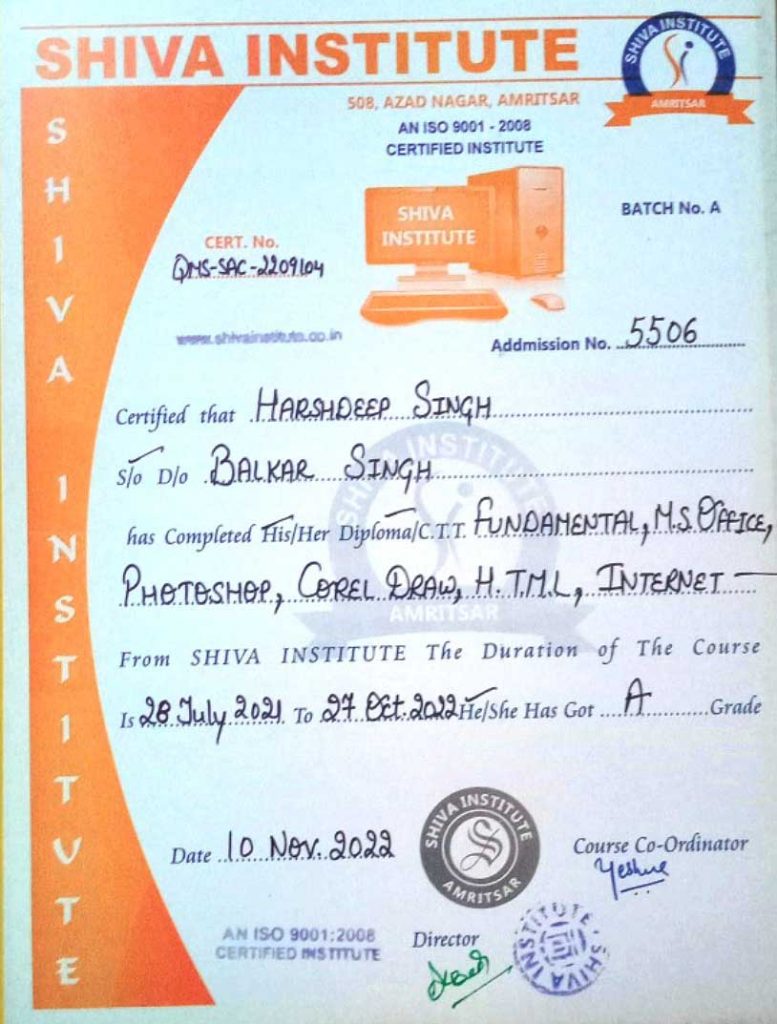 SHIVA INSTITUTE
SHIVA INSTITUTE
AMRITSAR
508, AZAD NAGAR, AMRITSAR
AN ISO 9001 - 2008
CERTIFIED INSTITUTE
SHIVA INSTITUTE
SHIVA
INSTITUTE
BATCH No. A
CERT. No.
QMS-SAC-2209104
www.shivainstitute.co.in
Addmission No. 5506
Certified that HARSHDEEP SINGH
S/o D/o BALKAR SINGH
has Completed His/Her Diploma/C.T.T. FUNDAMENTAL, M.S. OFFICE,
PHOTOSHOP, COREL DRAW, H.T.M.L, INTERNET
SHIVA INSTITUTE
AMRITSAR
From SHIVA INSTITUTE The Duration of The Course
Is 28 July 2021 To 27 Oct. 2022 He/She Has Got A Grade
SHIVA INSTITUTE
AMRITSAR
Date 10 Nov. 2022
Course Co-Ordinator
AN ISO 9001:2008
CERTIFIED INSTITUTE
Director
SHIVA INSTITUTE